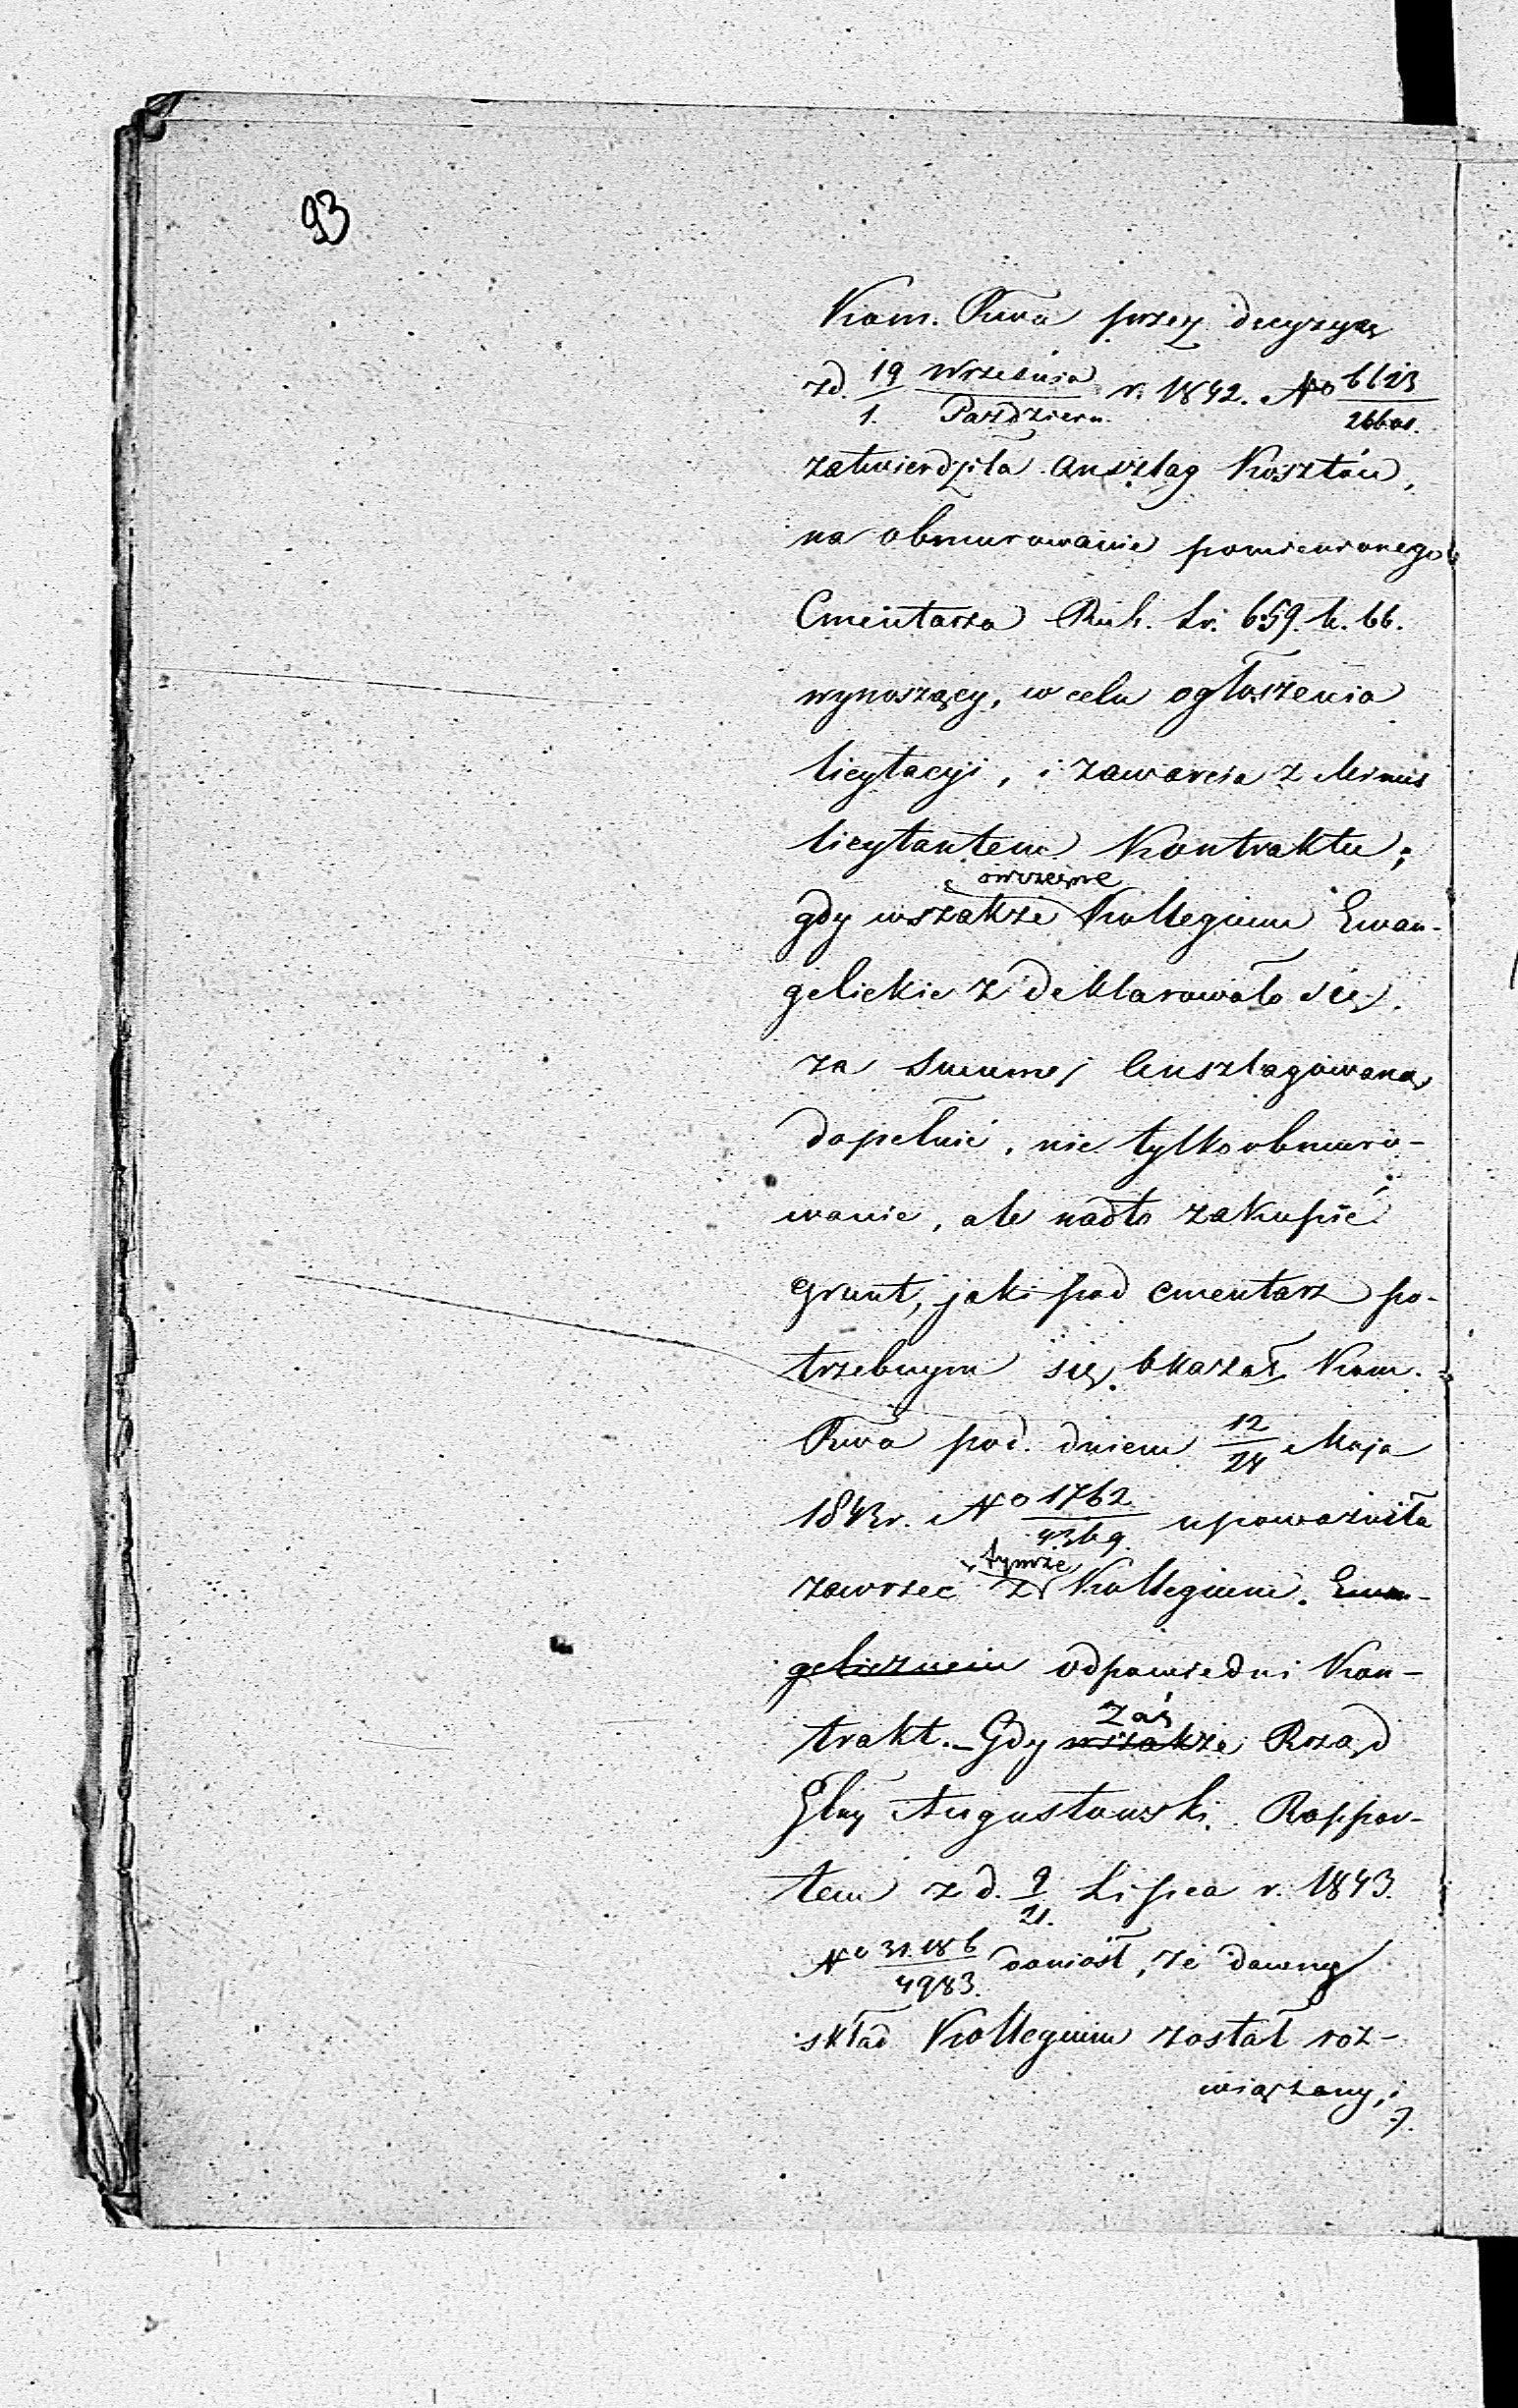 93
Kom. Rwa przez decyzyą
zd. 19 Września / 1. Paździer. r. 1842. No 6123/
zatwierdziła anszlag Kosztów,
na obmurowanie pomienionego
Cmentarza Rub. sr. 659. k. 66.
wynoszący, w celu ogłoszenia
licytacyi, i zawarcia z Minus
licytantem Kontraktu;
owczesne
gdy wszakże Kollegium Ewan-
gelickie zdeklarowało się
za Summę Anszlagowaną
dopełnić, nie tylko obmuro-
wanie, ale nadto zakupić
grunt, jaki pod cmentarz po-
trzebnym się okazał, Kom.
Rwa pod. dniem 12/24 Maja
1843 r. No 1762/4369 upoważniła
tymże
zawrzec z Kollegium. Ewan-
gelicznem odpowiedni Kon-
zaś
trakt. - Gdy wszakże Rząd
Glny Augustowski. Rappor-
tem z d. 9/21. Lipca r. 1843.
No 31.186/4983. doniosł, że dawny
skład Kollegium został roz-
wiązany, i